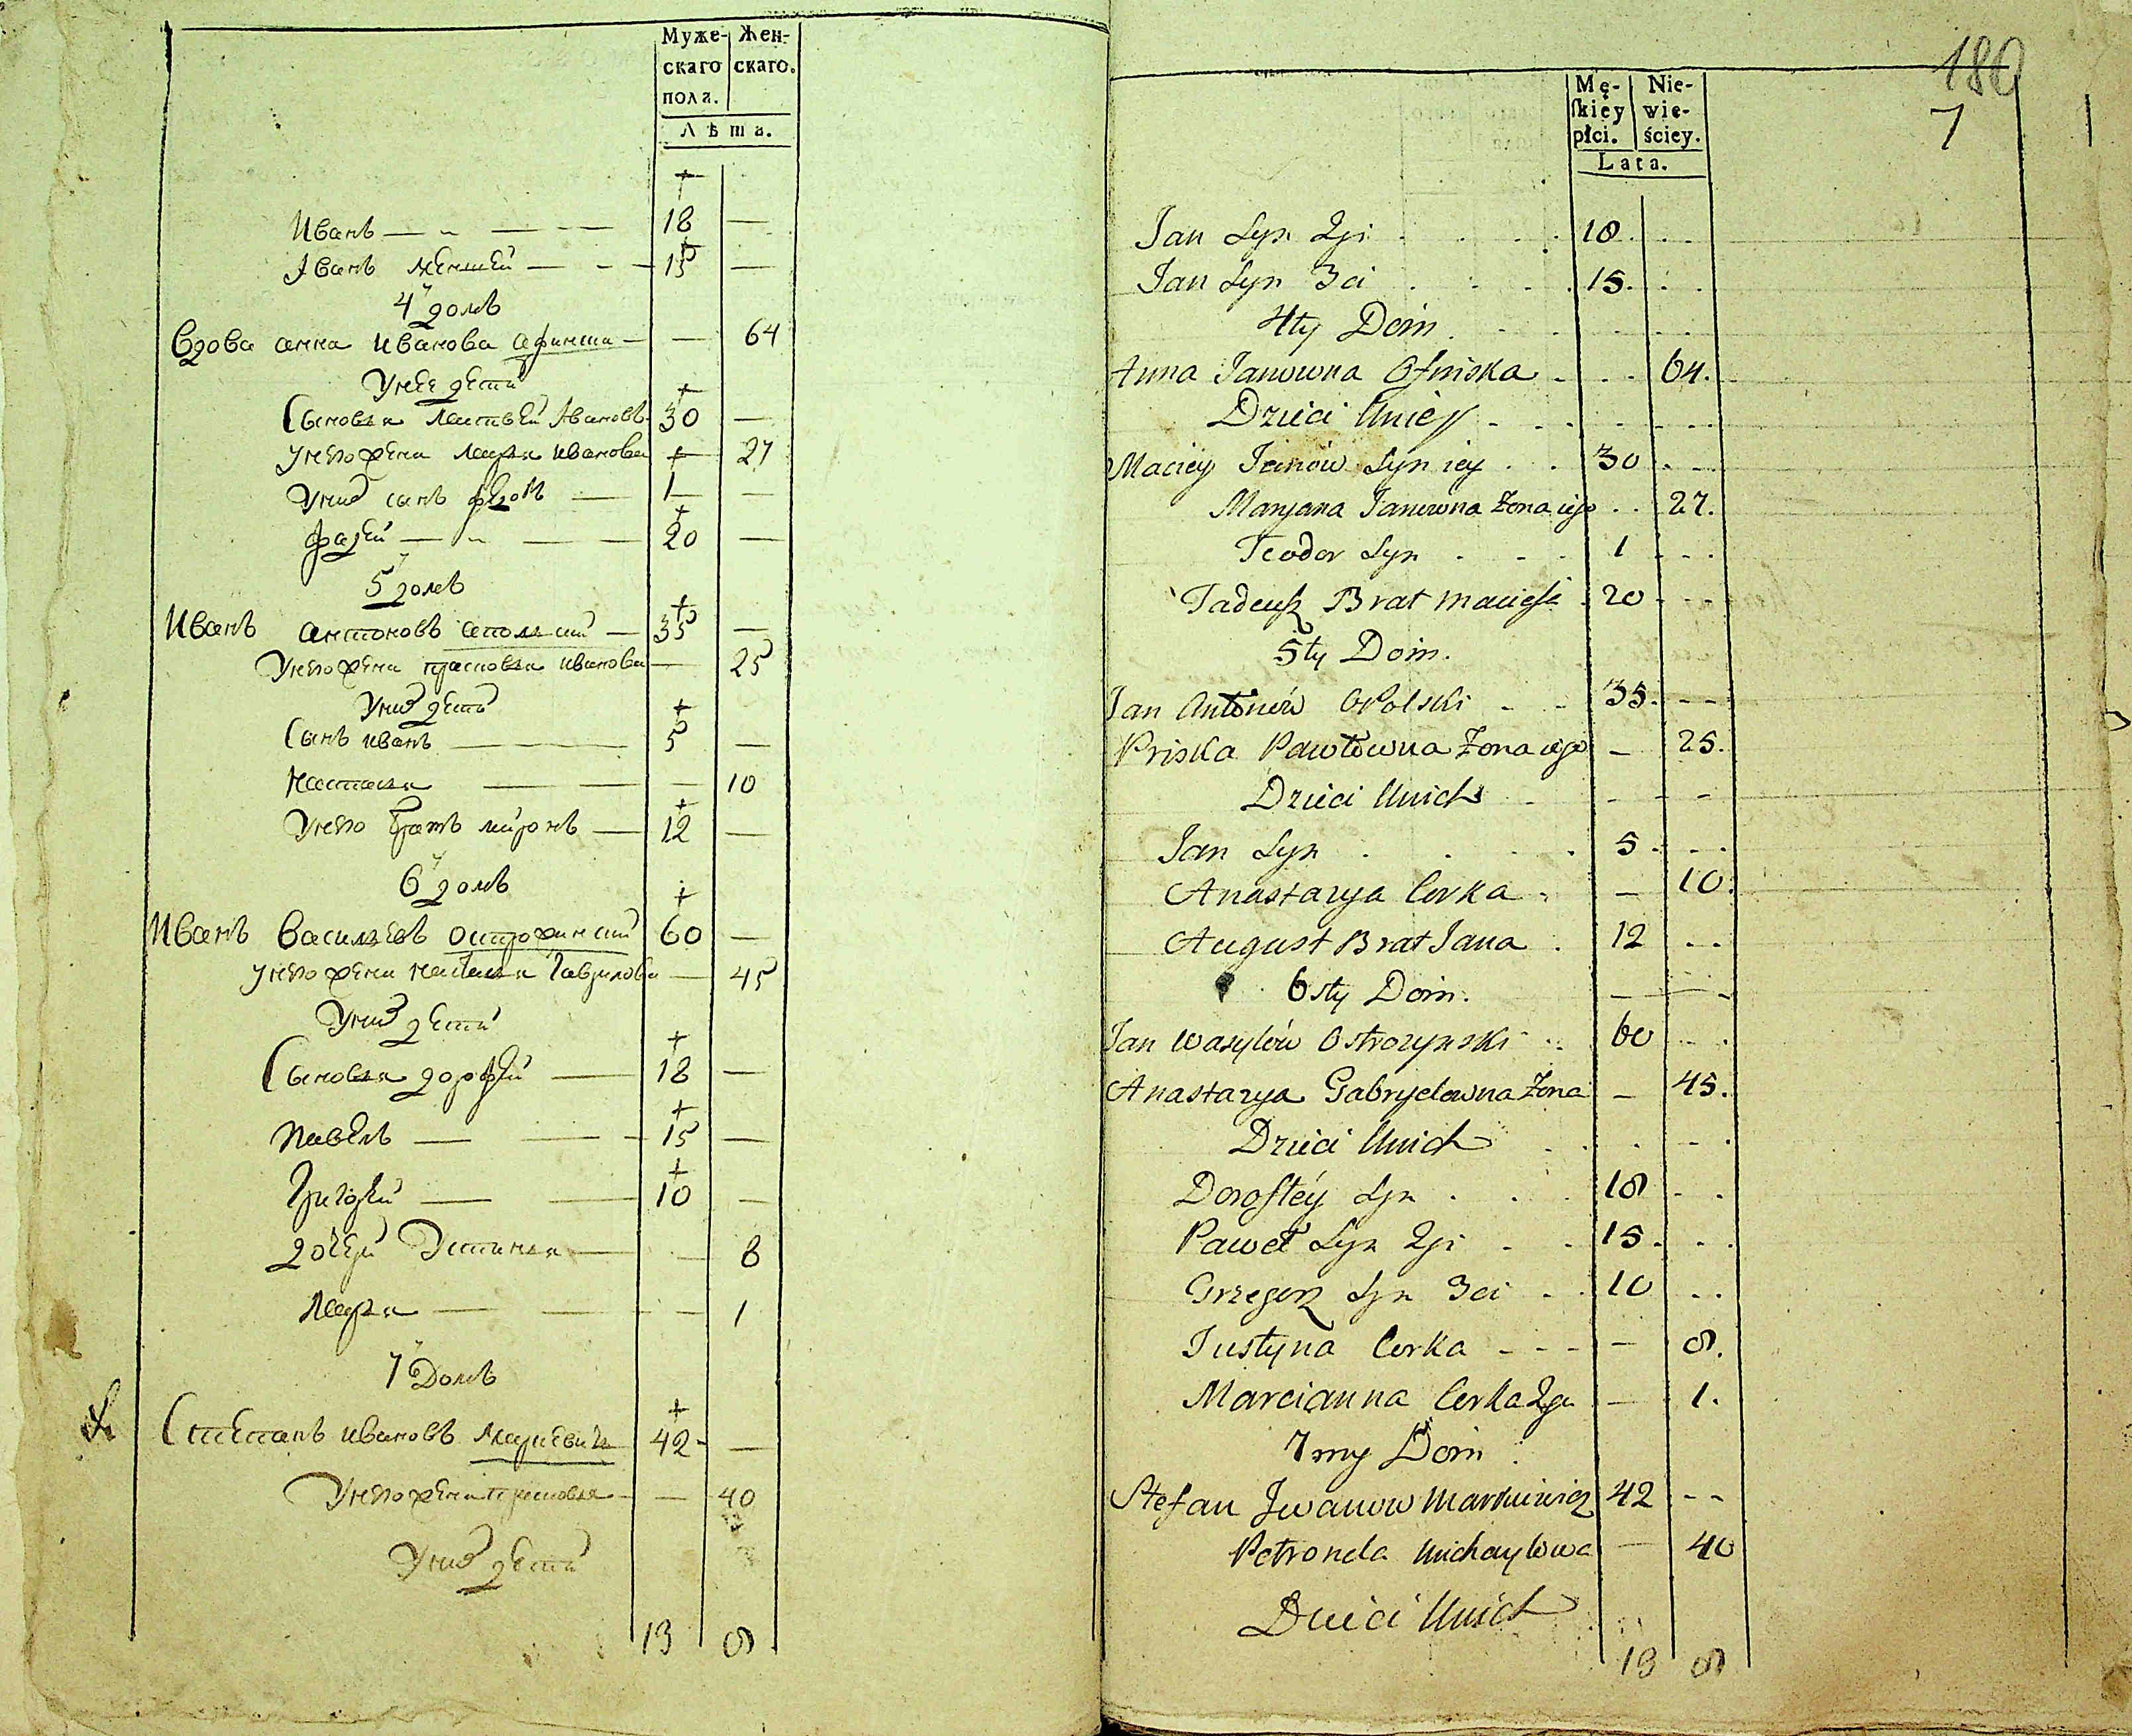 Муже- Жен-
скаго скаго.
пола.
Лѣта.
Иванъ — — 18 —
Иванъ меншей — 15 —
4й домъ
Вдова анна Иванова — — 64
У нее дети
Сыновья матвей Ивановъ 30 —
У него жена марья Иванова — 27
У них сынъ федоръ — 1 —
фадей — 20 —
5й домъ
Иванъ антоновъ апольский — 35 —
У него жена прасковья иванова — 25
У них дети
Сынъ иванъ — 5 —
Настасья — — 10
У него братъ миронъ — 12 —
6й домъ
Иванъ Васильевъ Острожинский 60 —
У него жена настасья Гаврилова — 45
У них дети
Сыновья дорофей — 18 —
Павелъ — 15 —
Григорей — 10 —
дочери Устинья — — 8
Марья — — 1
7й Домъ
Степанъ ивановъ Мацкевичъ 42 —
У него жена прасковья — — 40
У них дети
13 8
180
7
Mę- Nie-
skiey wie-
płci. ściey.
Lata.
Jan Syn 2gi 18
Jan Syn 3ci 15.
4ty Dom
Anna Janowna Ofinska 64.
Dzieci Uniey
Maciey Janow Syn iey 30
Maryana Janowna Zona iego 27.
Teodor Syn 1
Tadeusz Brat Macieja 20
5ty Dom.
Jan Antonów Opolski 35.
Priska Pawłowna Zona iego — 25.
Dzieci Unich
Jan Syn 5
Anastazya Corka — 10.
August Brat Jana 12
6sty Dom.
Jan Wasylów Ostrozynski 60
Anastazya Gabryelowna Zona — 45.
Dzieci Unich
Doroftéy Syn 18
Paweł Syn 2gi 15.
Grzegorz Syn 3ci 10
Justyna Corka — 8.
Marcianna Corka 2ga — 1.
7my Dom
Stefan Jwanow 42
Petronela Michayłowa — 40
Dzieci Unich
13 8